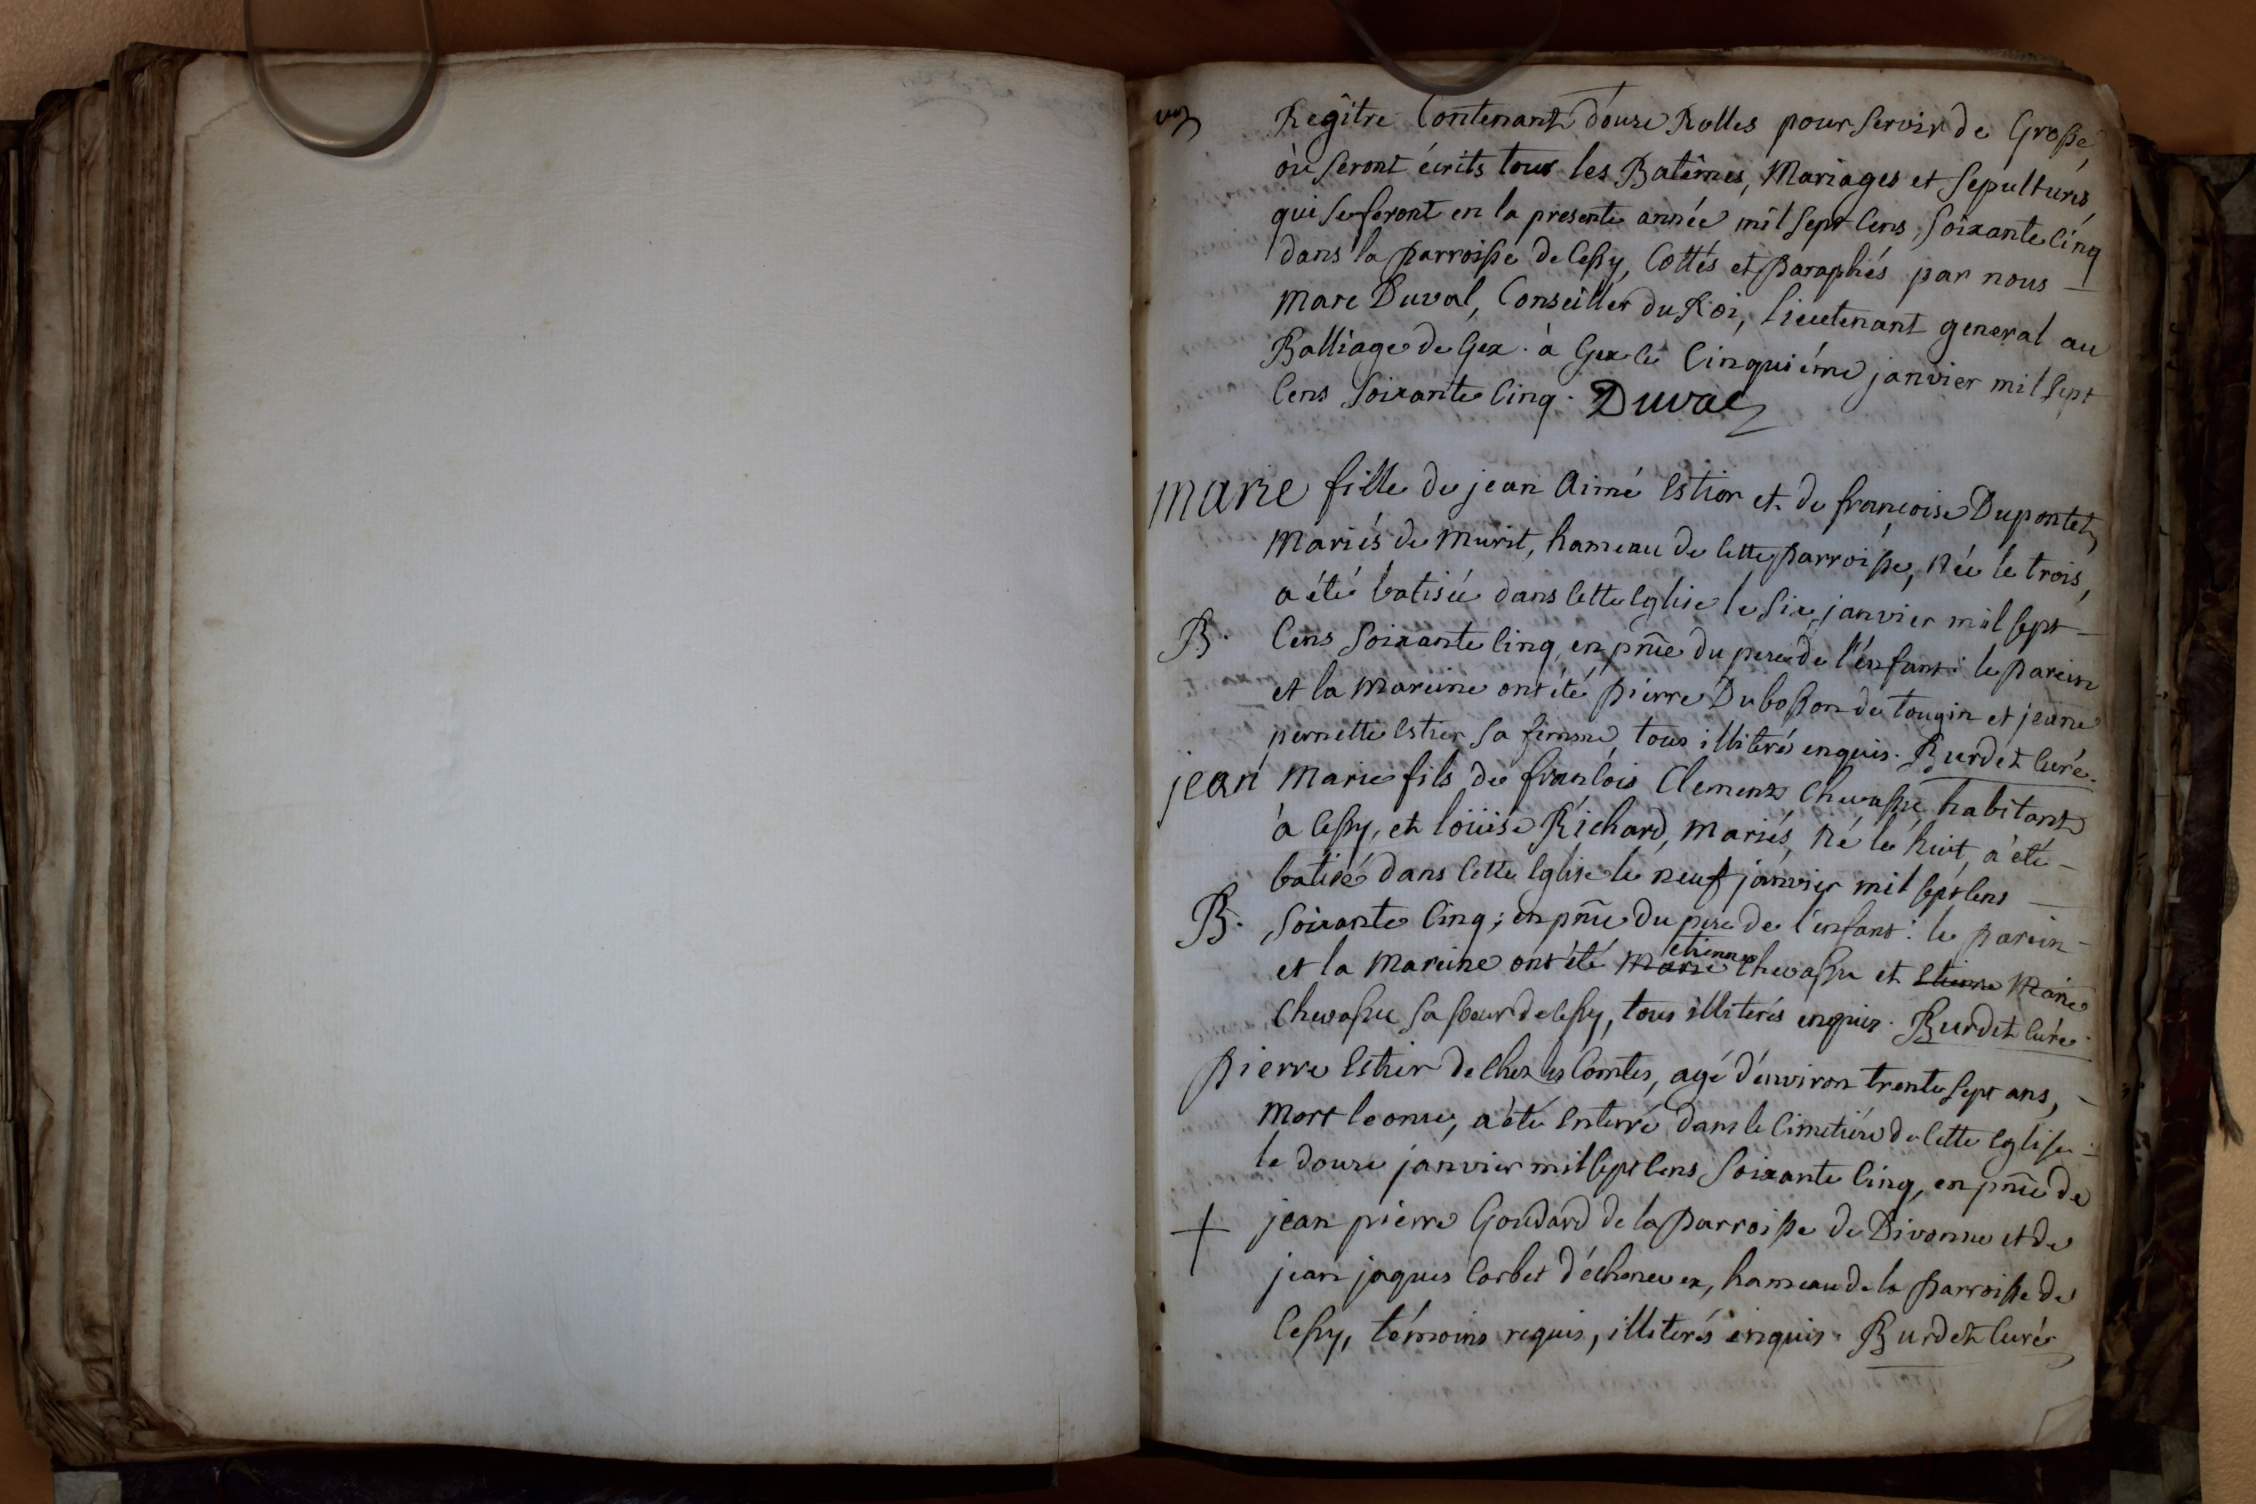 Regître Contenant douze Rolles pour servir de Grosse,
où seront écrits tous les Batêmes, Mariages et sepultures,
qui se feront en la presente année mil sept Cens soixante Cinq
dans la parroisse de Cessy, Cottés et paraphés par nous
Marc Duval, Conseiller du Roi, lieutenant general au
Balliage de Gex. à Gex le Cinquiéme janvier mil sept
Cens soixante Cinq. Duval
marie fille de jean Aimé Estier et de françoise Dupontet
Mariés de Murit, hameau de Cette parroisse, Née le trois,
a été batisée dans Cette Eglise le six janvier mil sept
B. Cens soixante Cinq, en pñce du pere de l'enfant: le parein
et la mareine ont été pierre Dubosson de tougin et jeane
pernette Estier sa femme, tous illiterés enquis. Burdet Curé.
jean Marie fils de francois Clement Chevassu habitant
à Cessy, et loüise Richard, mariés, Né le huit, a été
batisé dans Cette Eglise le neuf janvier mil sept Cens
B. soixante Cinq; en pñce du pere de l'enfant: le parein
etienne
et la Mareine ont été Marie Chevassu et Etienne Marie
Chevassu sa soeur de Cessy, tous illiterés enquis. Burdet Curé.
pierre Estier de Chez les Comtes, agé d'environ trente sept ans,
Mort le onze, a été Enterré dans le Cimetiére de Cette Eglise
le douze janvier mil sept Cens soixante Cinq, en pñce de
+ jean pierre Goudard de la parroisse de Divonne et de
jean jaques Corbet d'échenevex, hameau de la parroisse de
Cessy, témoins requis, illiterés enquis. Burdet Curé